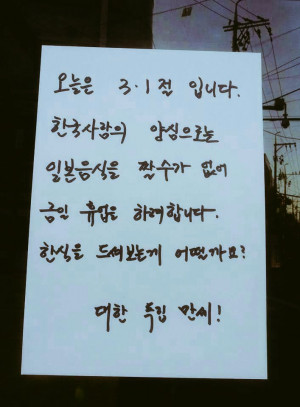 오늘은 3·1절 입니다.
한국사람의 양심으로는
일본음식을 팔수가 없어
금일 휴업을 하려합니다.
한식을 드셔보는게 어떨까요?
대한 독립 만세!